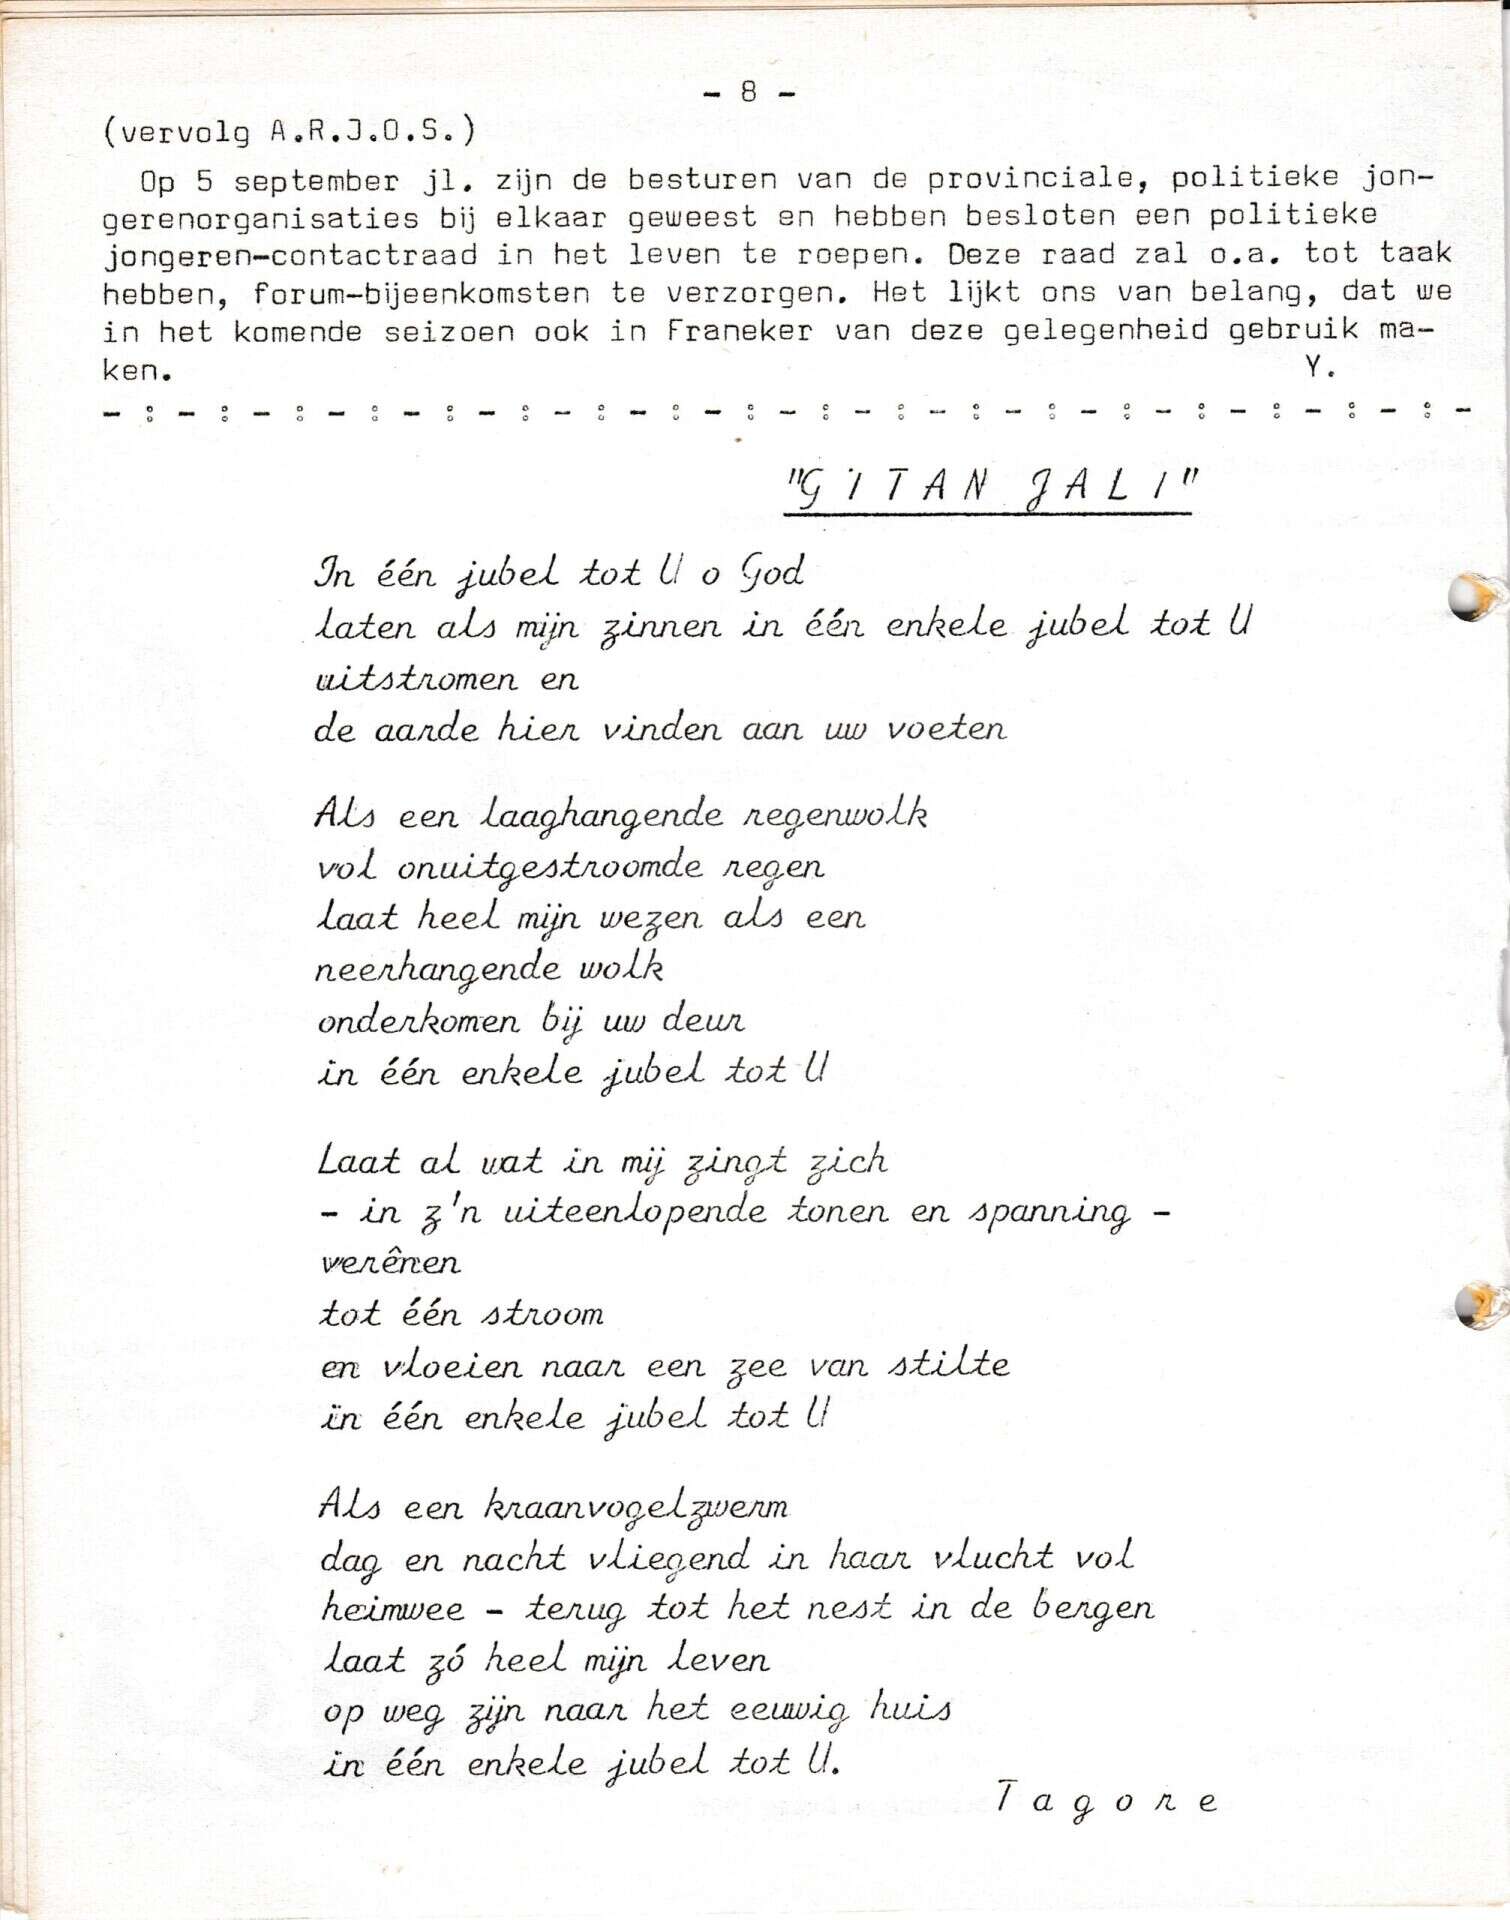 - 8 -
(vervolg A.R.J.O.S.)
Op 5 september jl. zijn de besturen van de provinciale, politieke jon-
gerenorganisaties bij elkaar geweest en hebben besloten een politieke
jongeren-contactraad in het leven te roepen. Deze raad zal o.a. tot taak
hebben, forum-bijeenkomsten te verzorgen. Het lijkt ons van belang, dat we
in het komende seizoen ook in Franeker van deze gelegenheid gebruik ma-
ken. Y.
-:-:-:-:-:-:-:-:-:-:-:-:-:-:-:-:-:-:-
"GITAN JALI"
In één jubel tot U o God
laten als mijn zinnen in één enkele jubel tot U
uitstromen en
de aarde hier vinden aan uw voeten
Als een laaghangende regenwolk
vol onuitgestroomde regen
laat heel mijn wezen als een
neerhangende wolk
onderkomen bij uw deur
in één enkele jubel tot U
Laat al wat in mij zingt zich
- in z'n uiteenlopende tonen en spanning -
verênen
tot één stroom
en vloeien naar een zee van stilte
in één enkele jubel tot U
Als een kraanvogelzwerm
dag en nacht vliegend in haar vlucht vol
heimwee - terug tot het nest in de bergen
laat zó heel mijn leven
op weg zijn naar het eeuwig huis
in één enkele jubel tot U.
Tagore